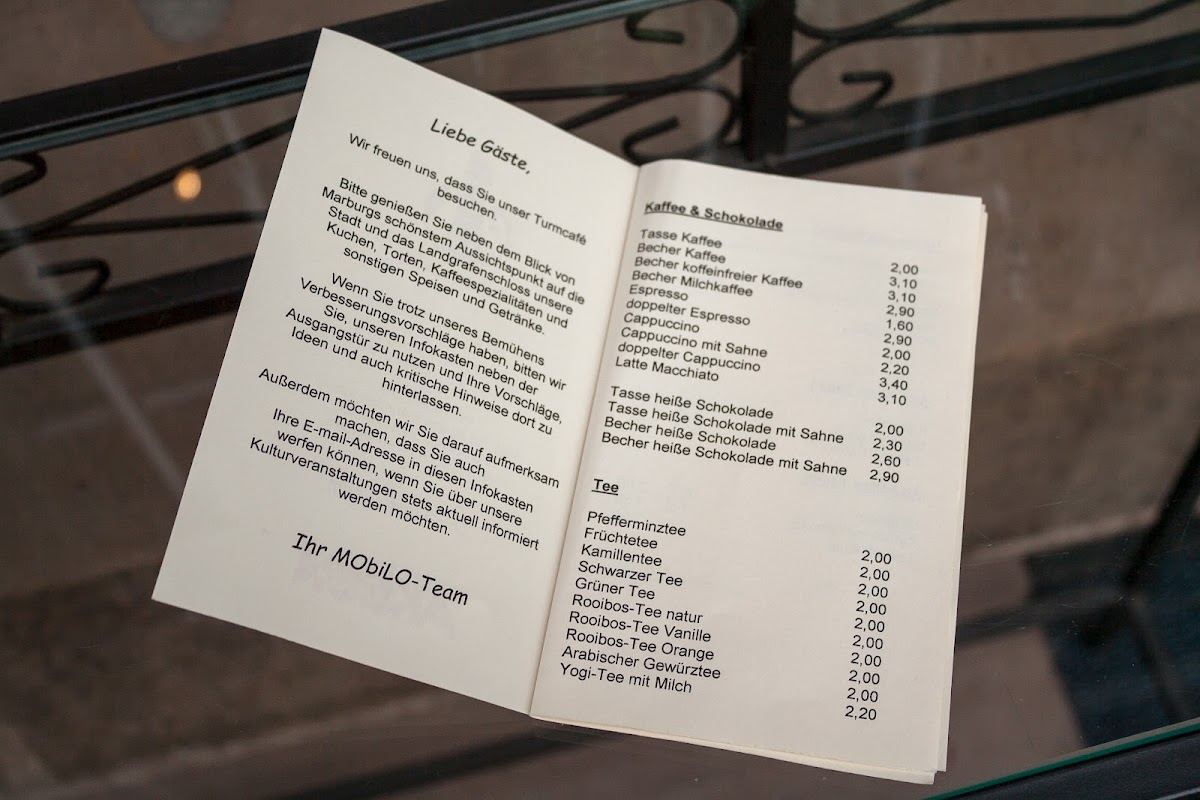 Liebe Gäste,
Wir freuen uns, dass Sie unser Turmcafé
besuchen.
Bitte genießen Sie neben dem Blick von
Marburgs schönstem Aussichtspunkt auf die
Stadt und das Landgrafenschloss unsere
Kuchen, Torten, Kaffeespezialitäten und
sonstigen Speisen und Getränke.
Wenn Sie trotz unseres Bemühens
Verbesserungsvorschläge haben, bitten wir
Sie, unseren Infokasten neben der
Ausgangstür zu nutzen und Ihre Vorschläge,
Ideen und auch kritische Hinweise dort zu
hinterlassen.
Außerdem möchten wir Sie darauf aufmerksam
machen, dass Sie auch
Ihre E-mail-Adresse in diesen Infokasten
werfen können, wenn Sie über unsere
Kulturveranstaltungen stets aktuell informiert
werden möchten.
Ihr MObiLO-Team
Kaffee & Schokolade
Tasse Kaffee 2,00
Becher Kaffee 3,10
Becher koffeinfreier Kaffee 3,10
Becher Milchkaffee 2,90
Espresso 1,60
doppelter Espresso 2,90
Cappuccino 2,00
Cappuccino mit Sahne 2,20
doppelter Cappuccino 3,40
Latte Macchiato 3,10
Tasse heiße Schokolade 2,00
Tasse heiße Schokolade mit Sahne 2,30
Becher heiße Schokolade 2,60
Becher heiße Schokolade mit Sahne 2,90
Tee
Pfefferminztee 2,00
Früchtetee 2,00
Kamillentee 2,00
Schwarzer Tee 2,00
Grüner Tee 2,00
Rooibos-Tee natur 2,00
Rooibos-Tee Vanille 2,00
Rooibos-Tee Orange 2,00
Arabischer Gewürztee 2,00
Yogi-Tee mit Milch 2,20